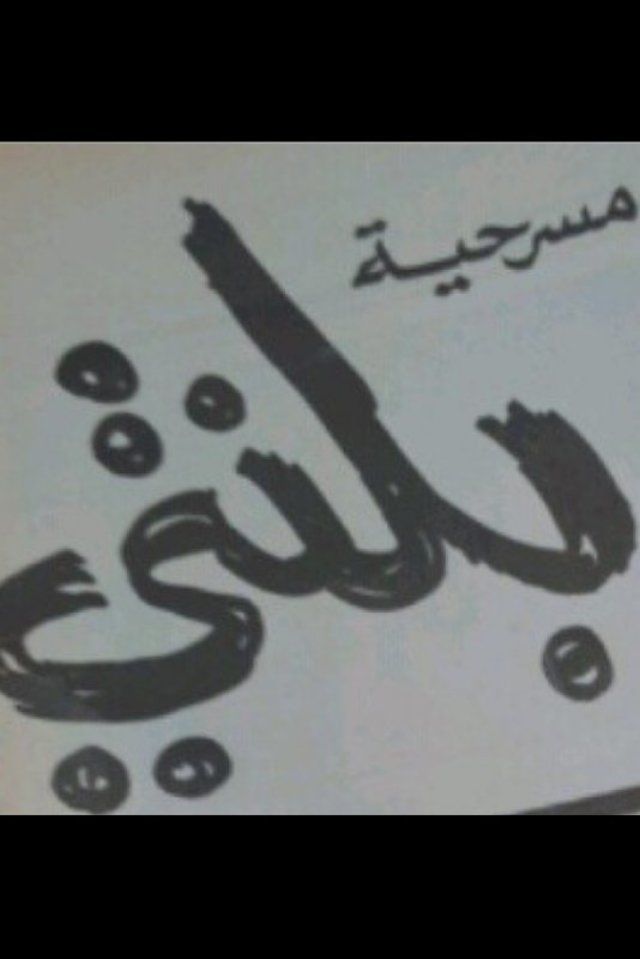 مسرحية
بلنتي